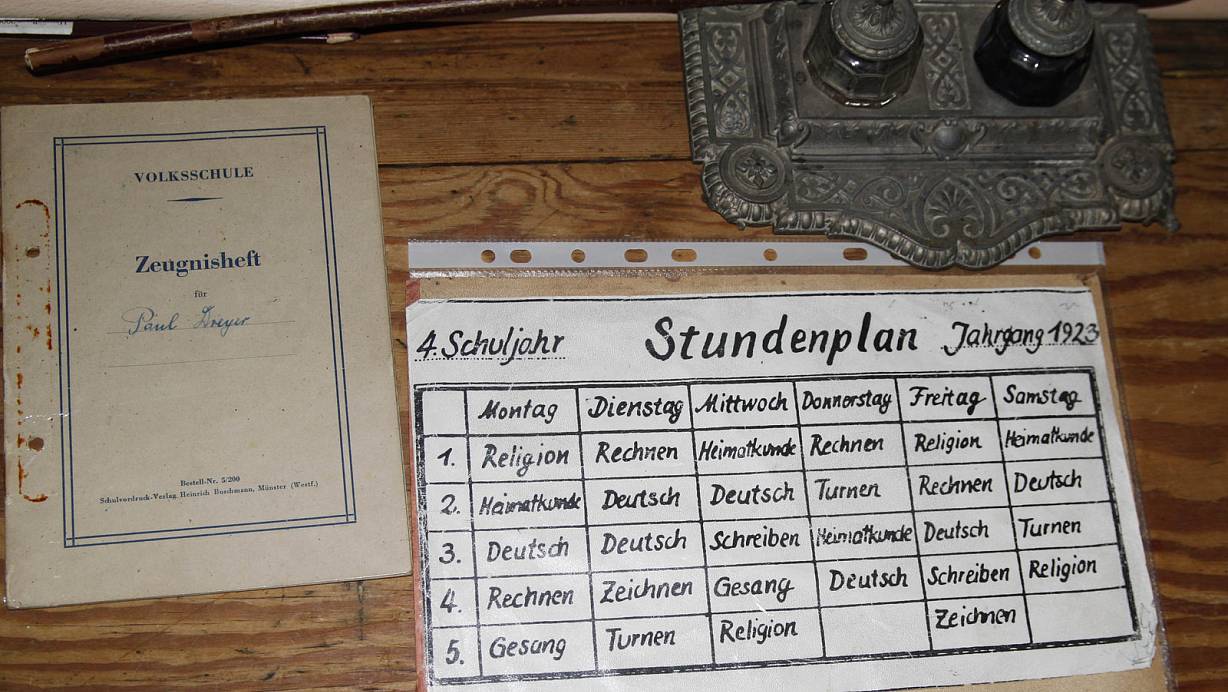 VOLKSSCHULE
Zeugnisheft
für
Paul Dreyer
Bestell-Nr. 5/200
Schulvordruck-Verlag Heinrich Buschmann, Münster (Westf.)
4. Schuljahr Stundenplan Jahrgang 1923
Montag Dienstag Mittwoch Donnerstag Freitag Samstag
1. Religion Rechnen Heimatkunde Rechnen Religion Heimatkunde
2. Heimatkunde Deutsch Deutsch Turnen Rechnen Deutsch
3. Deutsch Deutsch Schreiben Heimatkunde Deutsch Turnen
4. Rechnen Zeichnen Gesang Deutsch Schreiben Religion
5. Gesang Turnen Religion Zeichnen